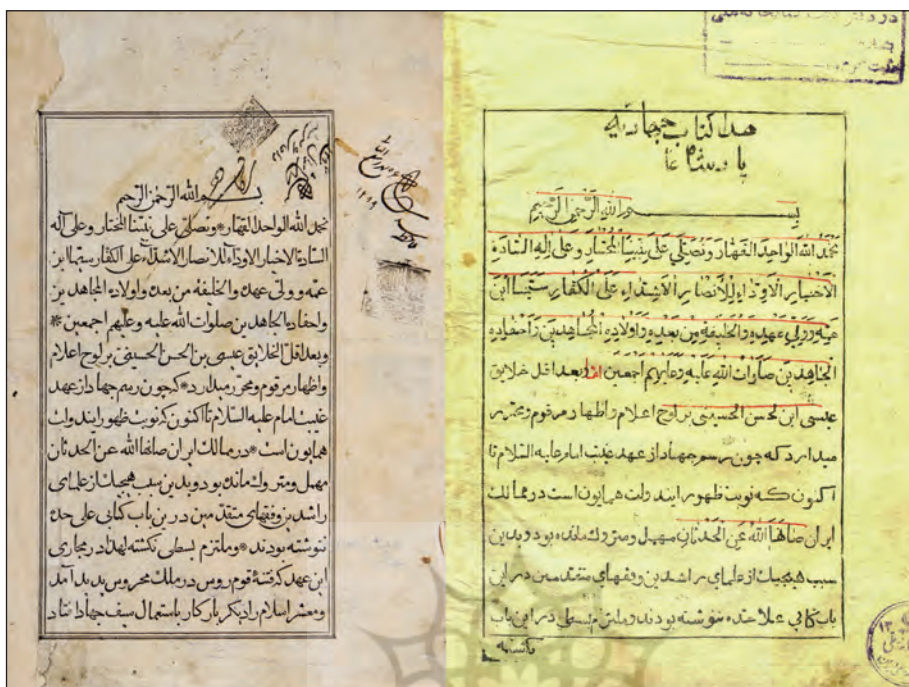 در دفتر ثبت کتابخانه ملی
هذا کتاب جهادیه
بسم الله الرحمن الرحیم
نَحْمَدُ اللهَ الْوَاحِدَ الْقَهّارَ وَنُصَلّی عَلی نَبِیِّنَا الْمُخْتارِ وَعَلی الِهِ السّادَةِ
الْاَخْیارِ الْاَوِدّاءِ لِلْاَنْصارِ الْاَشِدّاءِ عَلَی الْکُفّارِ سیّما ابن
عمّه و ولی عهده والخلیفة من بعده واولاده المجاهدین واحفاده
المجاهدین صلوات الله علیه وعلیهم اجمعین اما بعد اقل خلایق
عیسی ابن الحسن الحسینی بر لوح اعلام و اظهار مرقوم و محرر
میدارد که چون رسم جهاد از عهد غیبت امام علیه السلام تا
اکنون که نوبت ظهور این دولت همایون است در ممالک
ایران صانها الله عن الحدثان مهمل و متروک مانده بود و بدین
سبب هیچیک از علمای راشدین و فقهای متقدمین در این
باب کتابی علاحده ننوشته بودند و ملتزم بسطی در این باب
بسم الله الرحمن الرحیم
نحمد الله الواحد القهار * ونصلی علی نبینا المختار وعلی آله
السادة الاخیار الاوداء للانصار الاشداء علی الکفار سیما ابن
عمه و ولی عهده والخلیفة من بعده واولاده المجاهدین
واحفاده المجاهدین صلوات الله علیه وعلیهم اجمعین *
وبعد اقل الخلایق عیسی بن الحسن الحسینی بر لوح اعلام
واظهار مرقوم ومحرر میدارد * که چون رسم جهاد از عهد
غیبت امام علیه السلام تا اکنون که نوبت ظهور این دولت
همایون است * در ممالک ایران صانها الله عن الحدثان
مهمل و متروک مانده بود و بدین سبب هیچیک از علمای
راشدین و فقهای متقدمین در این باب کتابی علی حده
ننوشته بودند * و ملتزم بسطی نگشته لهذا در مجاری
این عهد که فتنهٔ قوم روس در ملک محروس پدید آمد
و معشر اسلام را دیگر بار کار باستعمال سیف جهاد افتاد